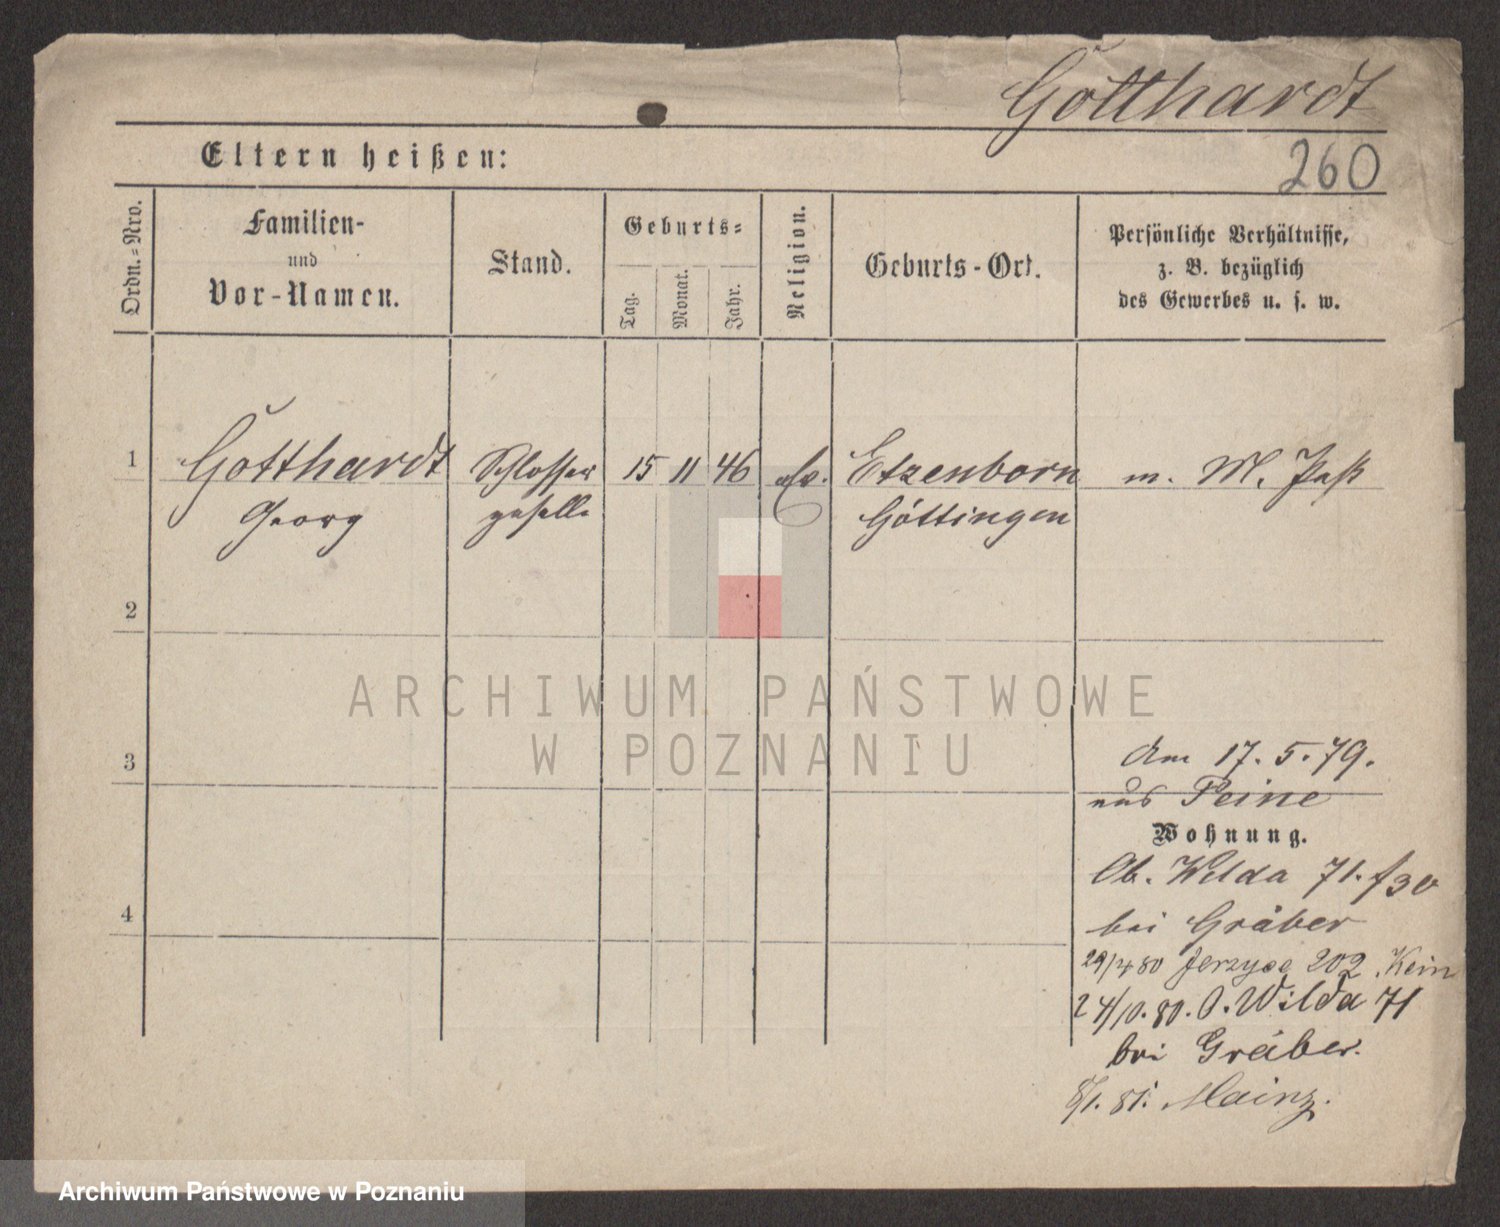 Gotthardt
Eltern heißen:
260
Ordn.-Nro.
Familien-
und
Vor-Namen.
Stand.
Geburts-
Tag.
Monat.
Jahr.
Religion.
Geburts-Ort.
Persönliche Verhältnisse,
z. B. bezüglich
des Gewerbes u. s. w.
1
Gotthardt
Georg
Schlosser
geselle
15
11
46
Etzenborn
Göttingen
m. M. Paß
2
3
4
ARCHIWUM PAŃSTWOWE
W POZNANIU
Am 17. 5. 79.
aus Peine
Wohnung.
Ob. Wilda 71.
bei Gräber
29/4 80 Jerzyce 202
24/10. 80. O. Wilda 71
bei Gräber.
8/1. 81. Mainz.
Archiwum Państwowe w Poznaniu